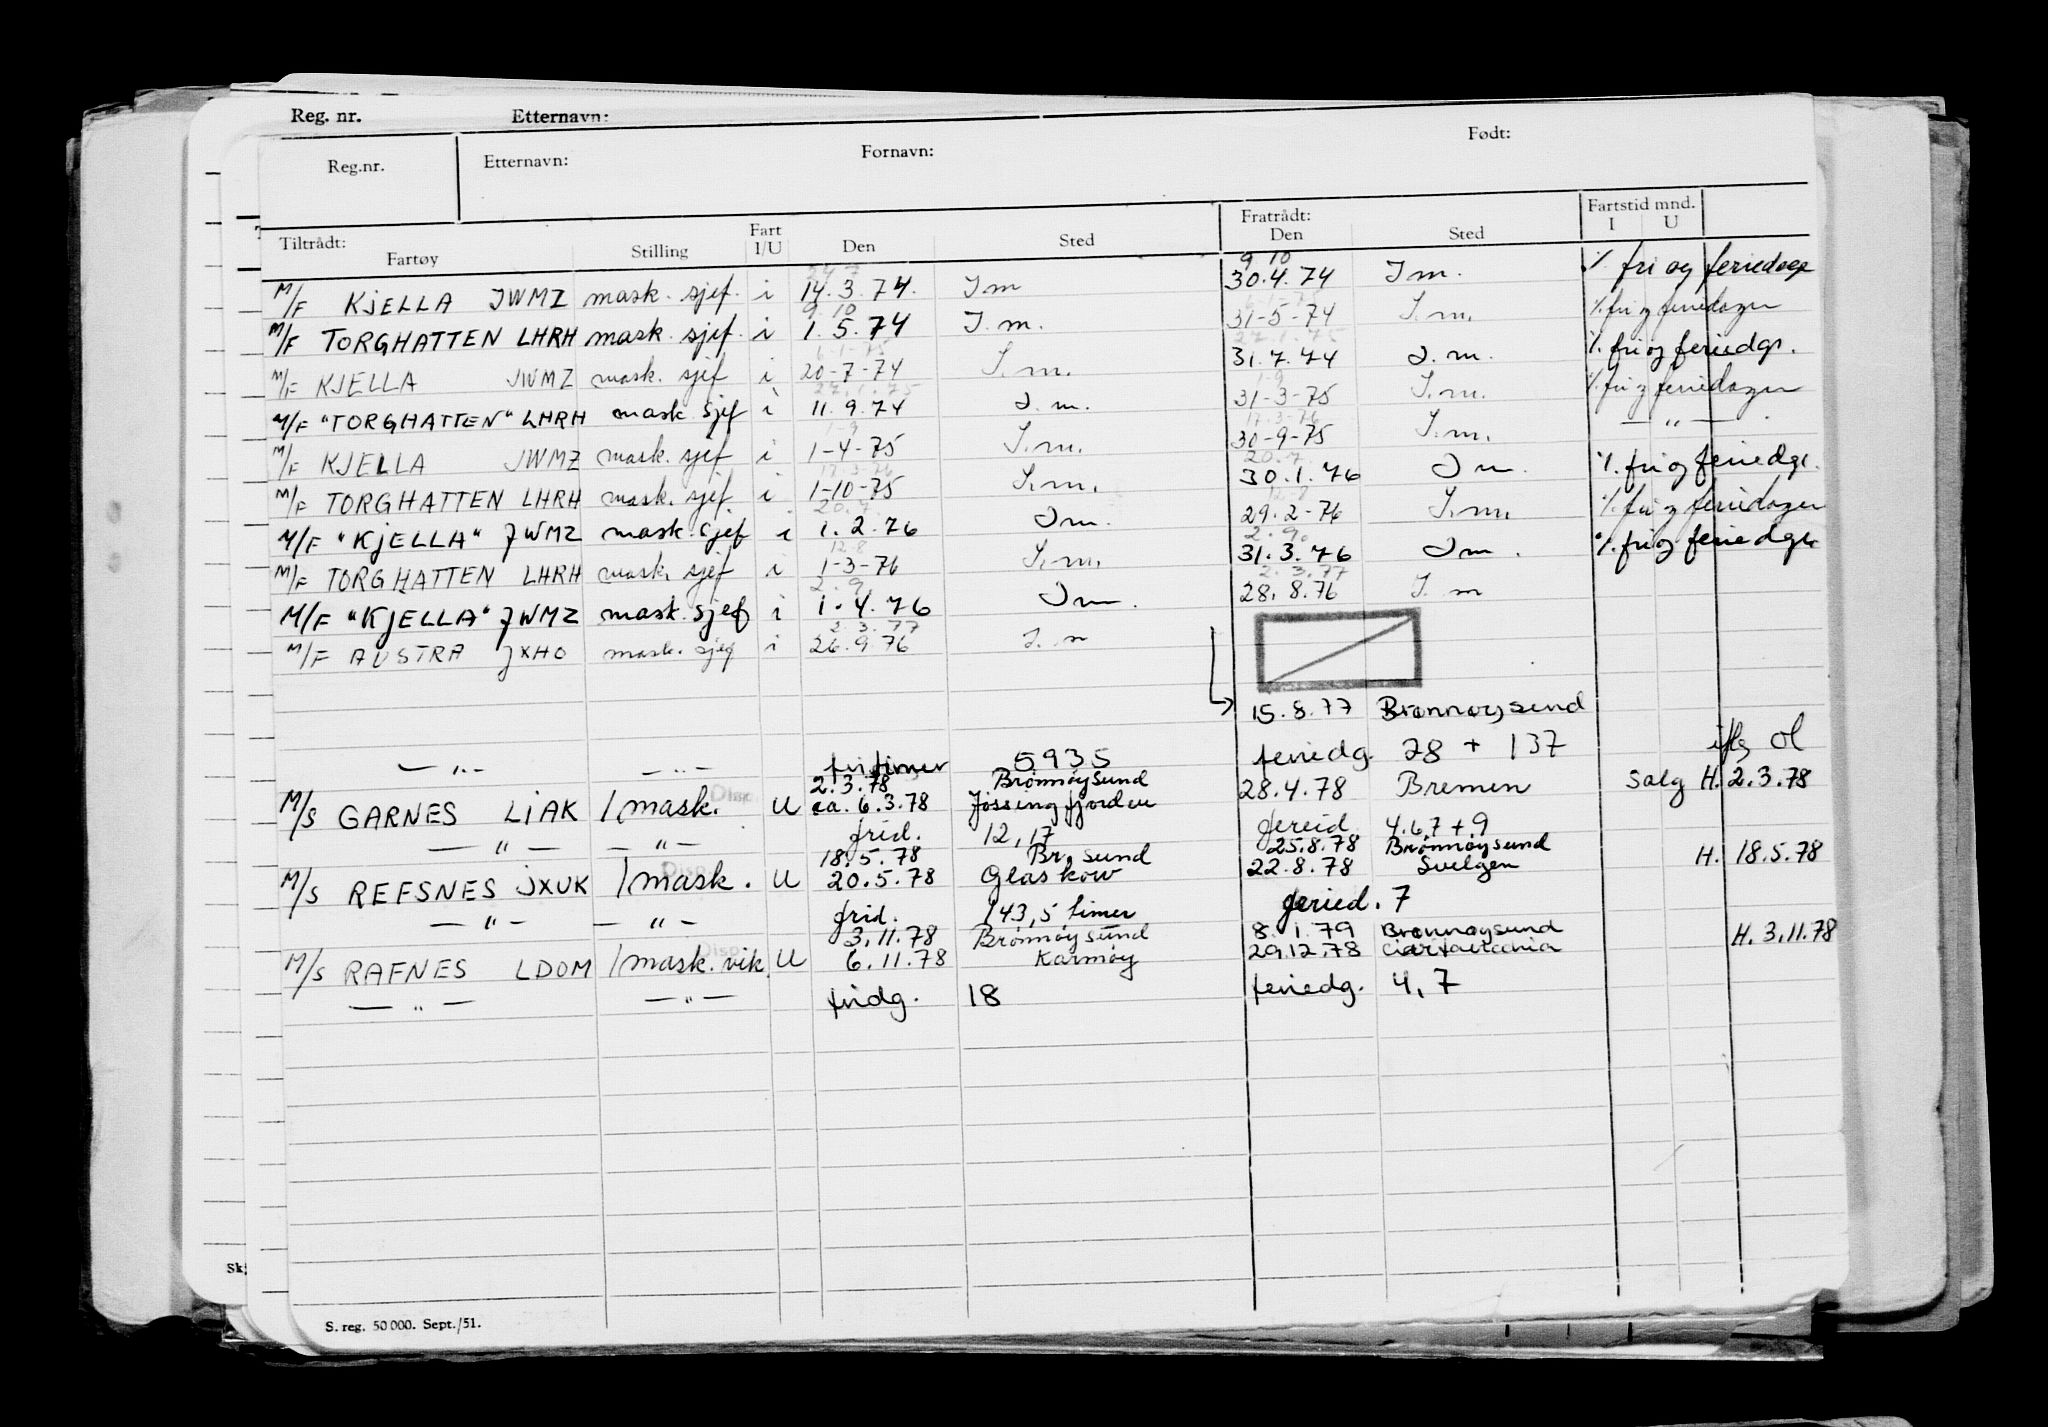 Reg. nr. Etternavn:
Reg.nr. Etternavn: Fornavn: Født:
Tiltrådt: Fratrådt: Fartstid mnd.
Fartøy Stilling Fart I/U Den Sted Den Sted I U
24 7 9 10
M/F KJELLA JWMZ mask. sjef. i 14.3.74. I m 30.4.74 I m. % fri og feriedage
9. 10
M/F TORGHATTEN LHRH mask. sjef. i 1.5.74 I. m. 31-5-74 I.m. % fri og feriedager
M/F KJELLA JWMZ mask. sjef i 20-7-74 I. m. 31.7.74 I. m. % fri og feriedgr.
M/F "TORGHATTEN" LHRH mask sjef i 11.9.74 I. m. 31-3-75 I.m. % fri og feriedager
1-9 17.3-76
M/F KJELLA JWMZ mask. sjef i 1-4-75 I.m. 30-9-75 I.m. — " —
17.3-76 20.7
M/F TORGHATTEN LHRH mask. sjef. i 1-10-75 I.m. 30.1.76 I m. % fri og feriedgr.
20.7. 12-8
M/F "KJELLA" JWMZ mask. sjef i 1.2.76 I m. 29.2-76 I.m. % fri og feriedager
12-8 2.9.
M/F TORGHATTEN LHRH mask. sjef i 1-3-76 I.m. 31.3.76 I m. % fri og feriedgr
2.9. 2.3.77
M/F "KJELLA" JWMZ mask. sjef i 1.4.76 I m. 28.8.76 I. m
2.3.77
M/F AUSTRA JXHO mask. sjef i 26.9.76 I. m
15.8.77 Brønnøysund
— " — — " — fri timer 5935 feriedg. 28 + 137 iflg Ol
2.3.78 Brønnøysund
M/S GARNES LIAK 1 mask. U ca. 6.3.78 Jøssingfjorden 28.4.78 Bremen Salg H. 2.3.78
— " — — " — frid. 12,17 fereid. 4.6,7 + 9
18.5.78 Br. sund 25.8.78 Brønnøysund
M/S REFSNES JXUK 1 mask. U 20.5.78 Glaskow 22.8.78 Svelgen H. 18.5.78
— " — — " — frid. 143,5 timer feried. 7
3.11.78 Brønnøysund 8.1.79 Brønnøysund
M/S RAFNES LDOM 1 mask. vik. U 6.11.78 Karmøy 29.12.78 H. 3.11.78
— " — — " — fridg. 18 feriedg. 4,7
S. reg. 50 000. Sept./51.